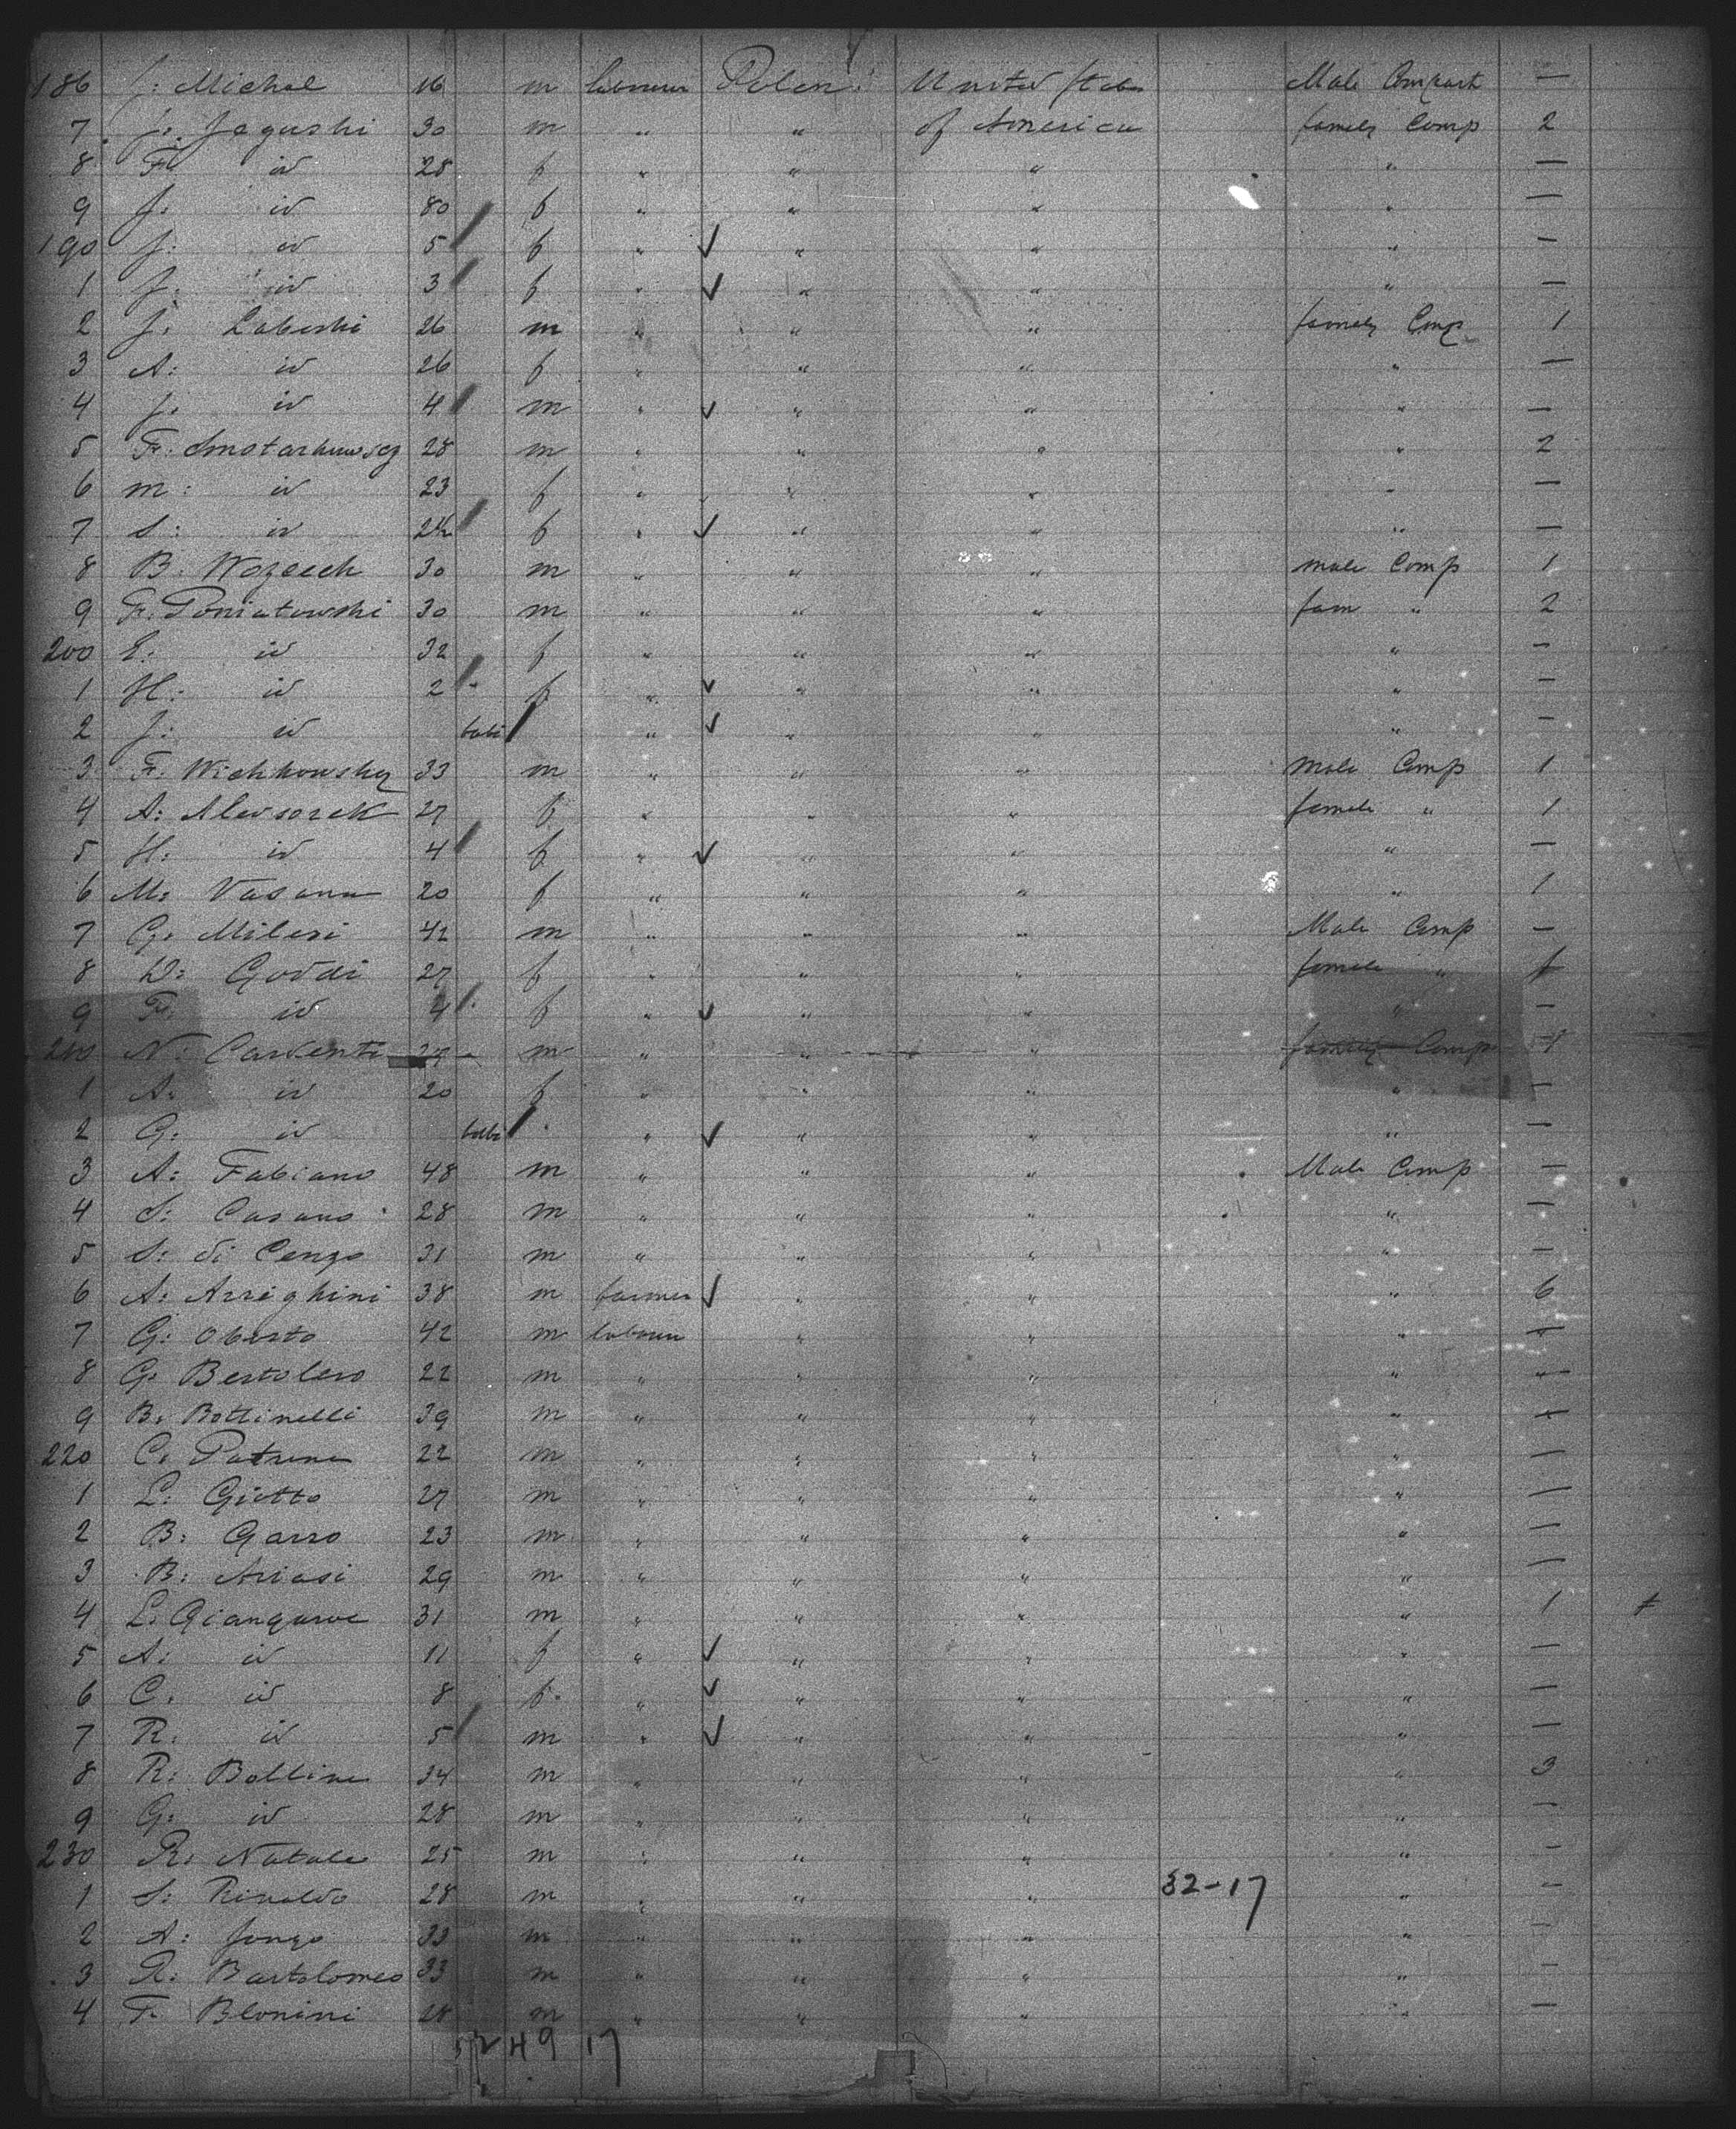 186 J: Michal 16 m labourer Polen United States Male Compart —
7 J: Jagushi 30 m " " of America family Comp 2
8 Fr id 28 f " " " " —
9 J: id 80 f " " " " —
190 J: id 5 f " ✓ " " " —
1 J: id 3 f " ✓ " " " —
2 J: Labeshi 26 m " " " family Comp 1
3 A: id 26 f " " " " —
4 J: id 4 m " ✓ " " " —
5 Fr: 28 m " " " " 2
6 m: id 23 f " " " " —
7 S: id f " ✓ " " " —
8 B: Wozeech 30 m " " " male Comp 1
9 Fr. Poniatowski 30 m " " " fam " 2
200 E: id 32 f " " " " —
1 H: id 2 f " ✓ " " " —
2 J: id babi " ✓ " " " —
3 F: Wichkowsky 33 m " " " male Comp 1
4 A: 27 f " " " female " 1
5 H: id 4 f " ✓ " " " —
6 M: Vasana 20 f " " " " 1
7 G: Milesi 42 m " " " Male Comp —
8 D: Goddi 27 f " " " female " 1
9 Fr: id 4 f " ✓ " " " —
210 N: Carventi m " " " family Comp 1
1 A: id 20 f " " " " —
2 G: id babi " ✓ " " " —
3 A: Fabiano 48 m " " " Male Comp —
4 S: Casano 28 m " " " " —
5 S: di Cenzo 31 m " " " " —
6 A: Arrighini 38 m farmer ✓ " " " 6
7 G: Oberto 42 m labour " " " —
8 G: Bertolero 22 m " " " " —
9 B: Bottinelli 39 m " " " " —
220 C: Patrene 22 m " " " " —
1 L: Giotto 27 m " " " " —
2 B: Garro 23 m " " " " —
3 B: Ariasi 29 m " " " " —
4 L: 31 m " " " " 1
5 A: id 11 f " ✓ " " " —
6 C. id 8 f " ✓ " " " —
7 R: id 5 m " ✓ " " " —
8 R: Bolline 34 m " " " " 3
9 G: id 28 m " " " " —
230 R: Natale 25 m " " " " —
1 S: Rinaldo 28 m " " " 32-17 " —
2 A: Jonzo 33 m " " " " —
3 R: Bartolomeo 33 m " " " " —
4 F. Blonini 28 m " " " " —
49 17